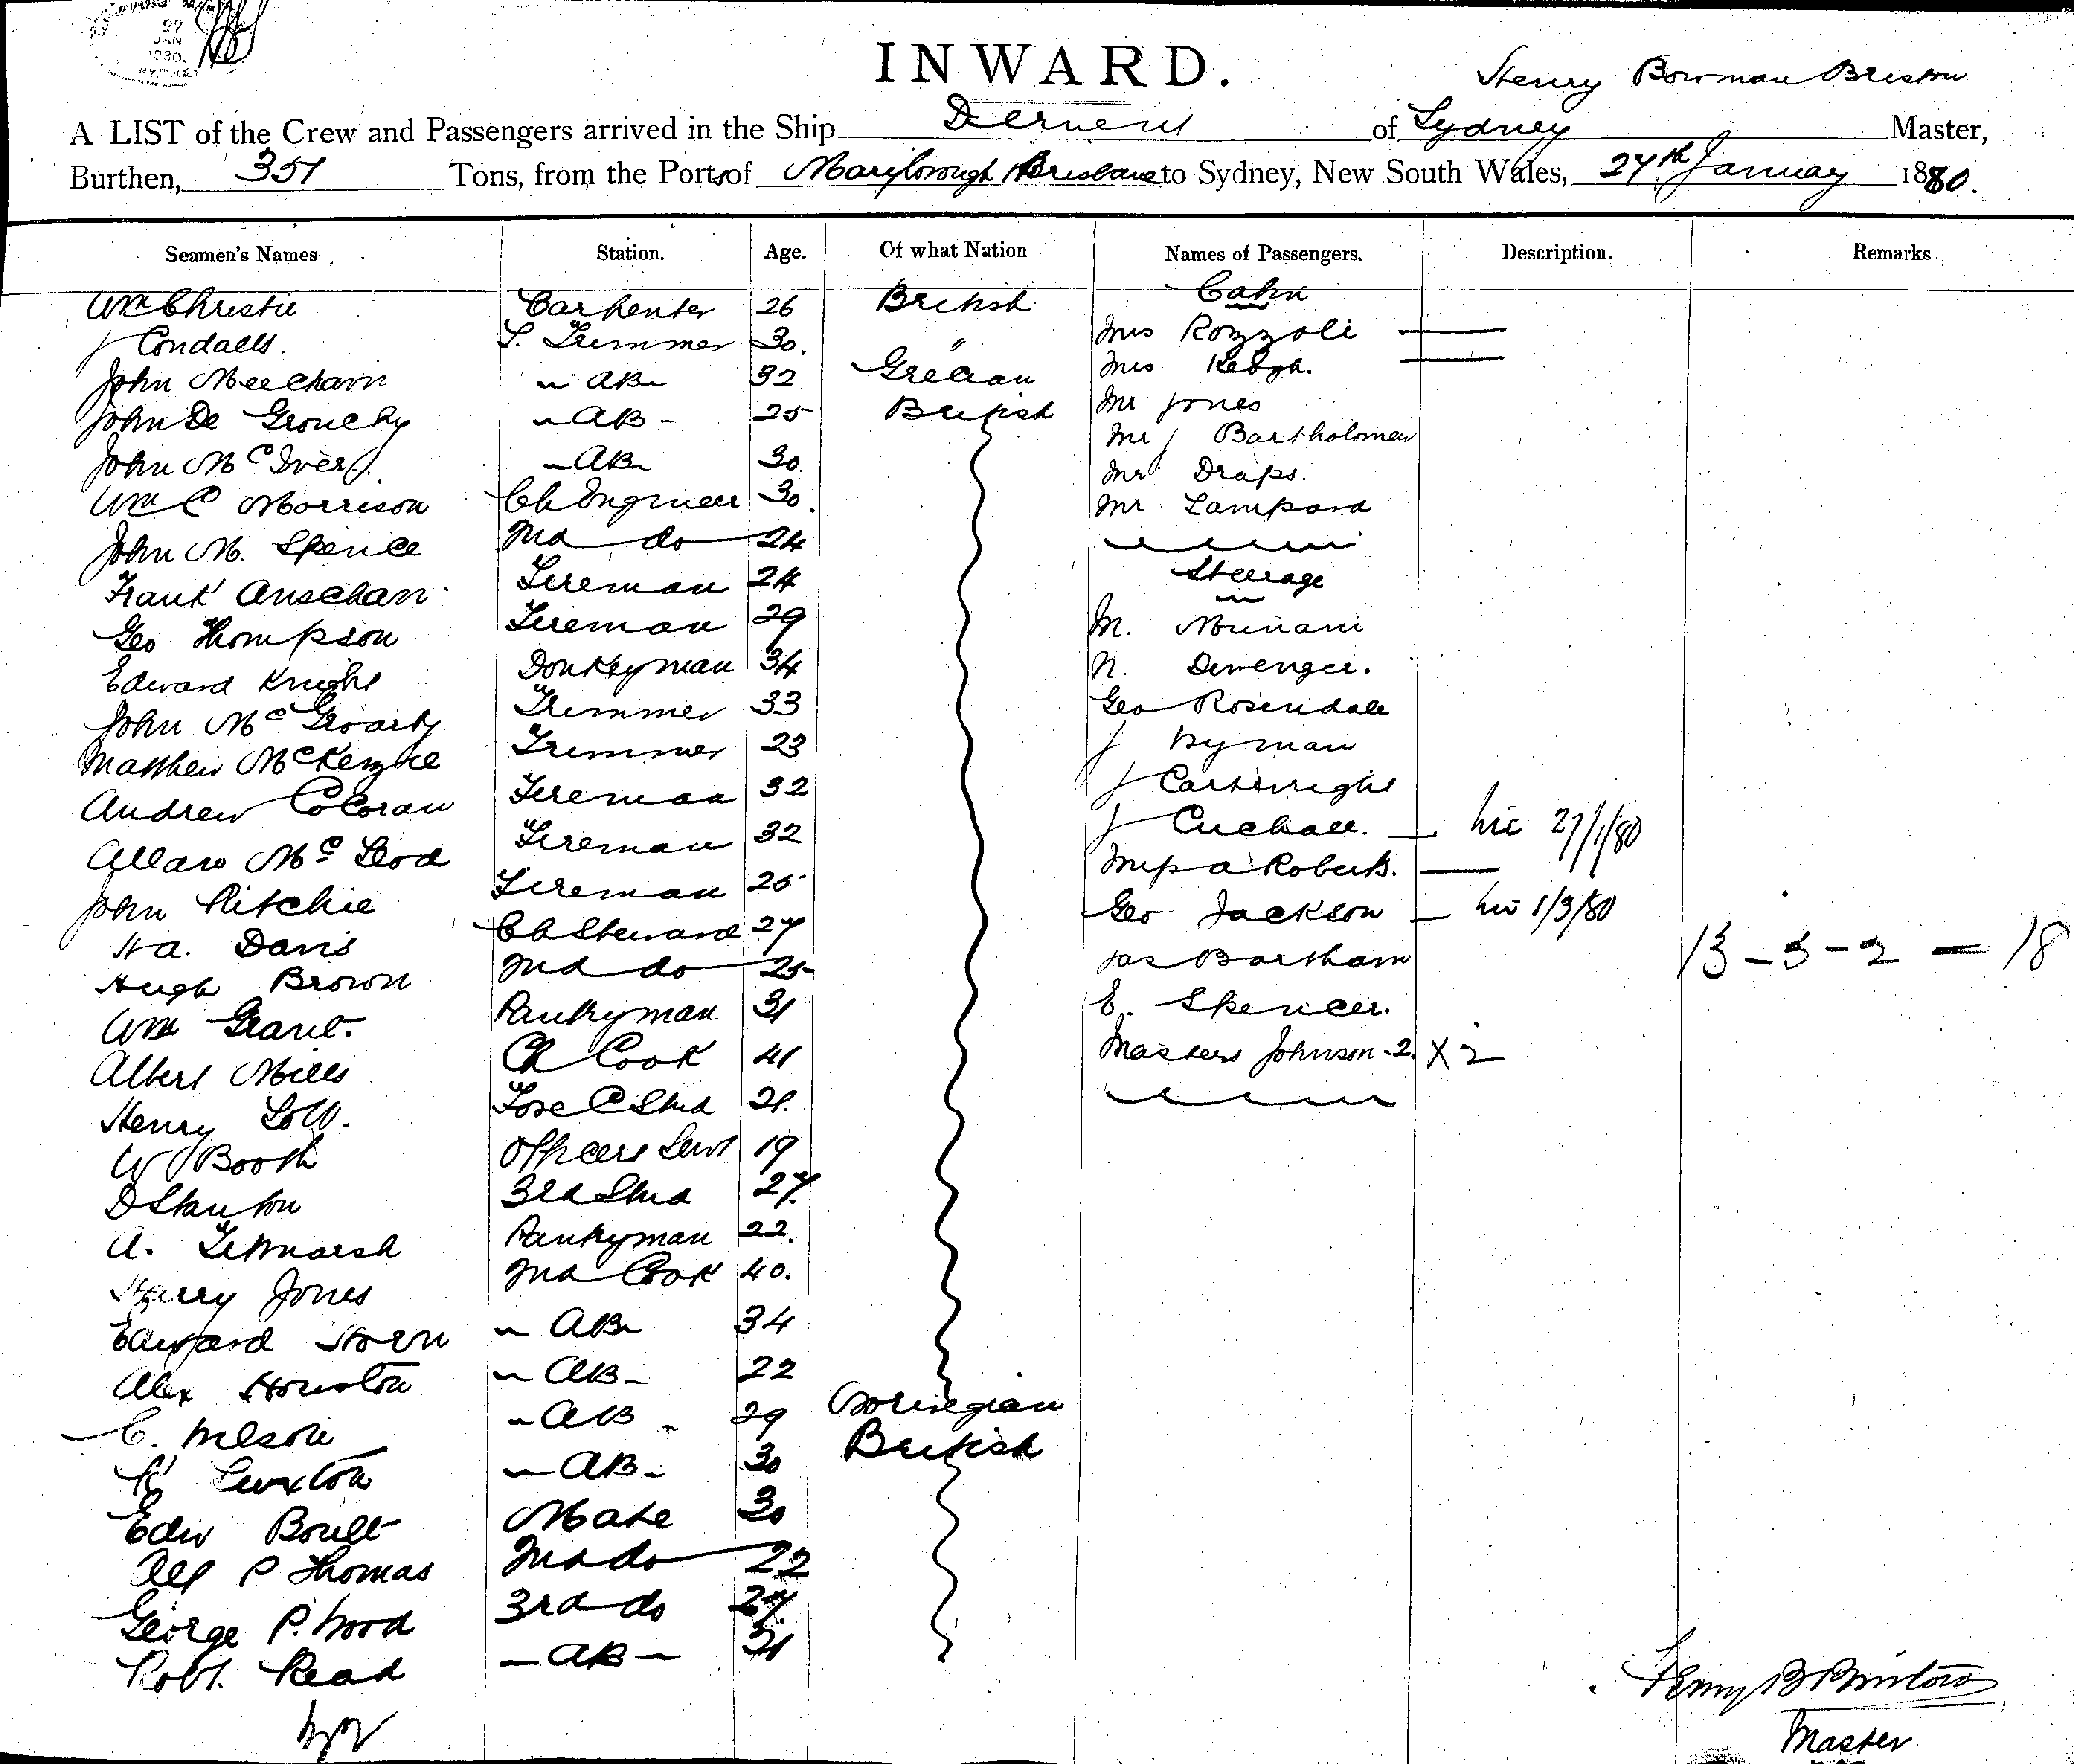 27
JAN
1880
INWARD.
Henry Bowman Bristow
A LIST of the Crew and Passengers arrived in the Ship Derwent of Sydney Master,
Burthen, 351 Tons, from the Ports of Maryborough & Brisbane to Sydney, New South Wales, 27th January 1880.
Seamen's Names Station. Age. Of what Nation Names of Passengers. Description. Remarks
Wm Christie Carpenter 26 British Cabin
J Condalls. L. Trimmer 30. " Mrs Rozzoli
John Meecham AB 32 Grecian Mrs Keogh.
John De Grouchy AB 25 British Mr Jones
John McIver AB 30. Mr J Bartholomew
Wm C Morrison Ch Engineer 30. Mr Draps.
John M. Spence 2nd do 24 Mr Lampard
Frank Anscham Fireman 24 Steerage
Geo Thompson Fireman 29 M.
Edward Knight Donkeyman 34 N.
John McGroarty Trimmer 33 Geo Rosendale
Matthew McKenzie Trimmer 23 J Hyman
Andrew CoCoran Fireman 32 J Cartwright
Allan McLeod Fireman 32 J 27/1/80
John Ritchie Fireman 25 Miss A Roberts.
H A. Davis Ch Steward 27 Geo Jackson 1/3/80
Hugh Brown 2nd do 25 Jas Bartham 13 - 3 - 2 — 18
Wm Grant. Pantryman 31 E. Spencer.
Albert Mills Ch Cook 41 Masters Johnson - 2. X 2
Henry Low. Fore C Stwd 21.
W Booth Officers Servt 19
D Stanton 3rd Stwd 27.
A. Titmarsh Pantryman 22.
Harry Jones 2nd Cook 40.
Edward Horn AB 34
Alex Houston AB 22
C. Nelson AB 29 Norwegian
Luxton AB 30 British
Edw Boult Mate 30
Alf P Thomas 2nd do 22
George P. Wood 3rd do 27.
Robt. Read AB 31
Henry B Bristow
Master